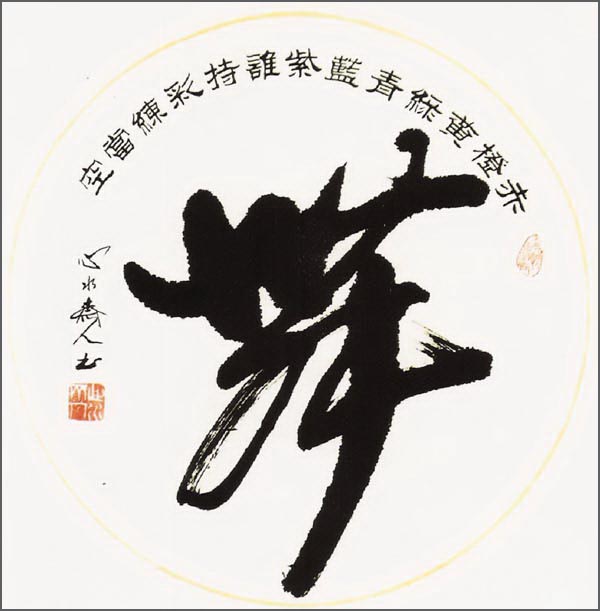 赤橙黄綠青藍紫誰持彩練當空
舞
心水齋人书